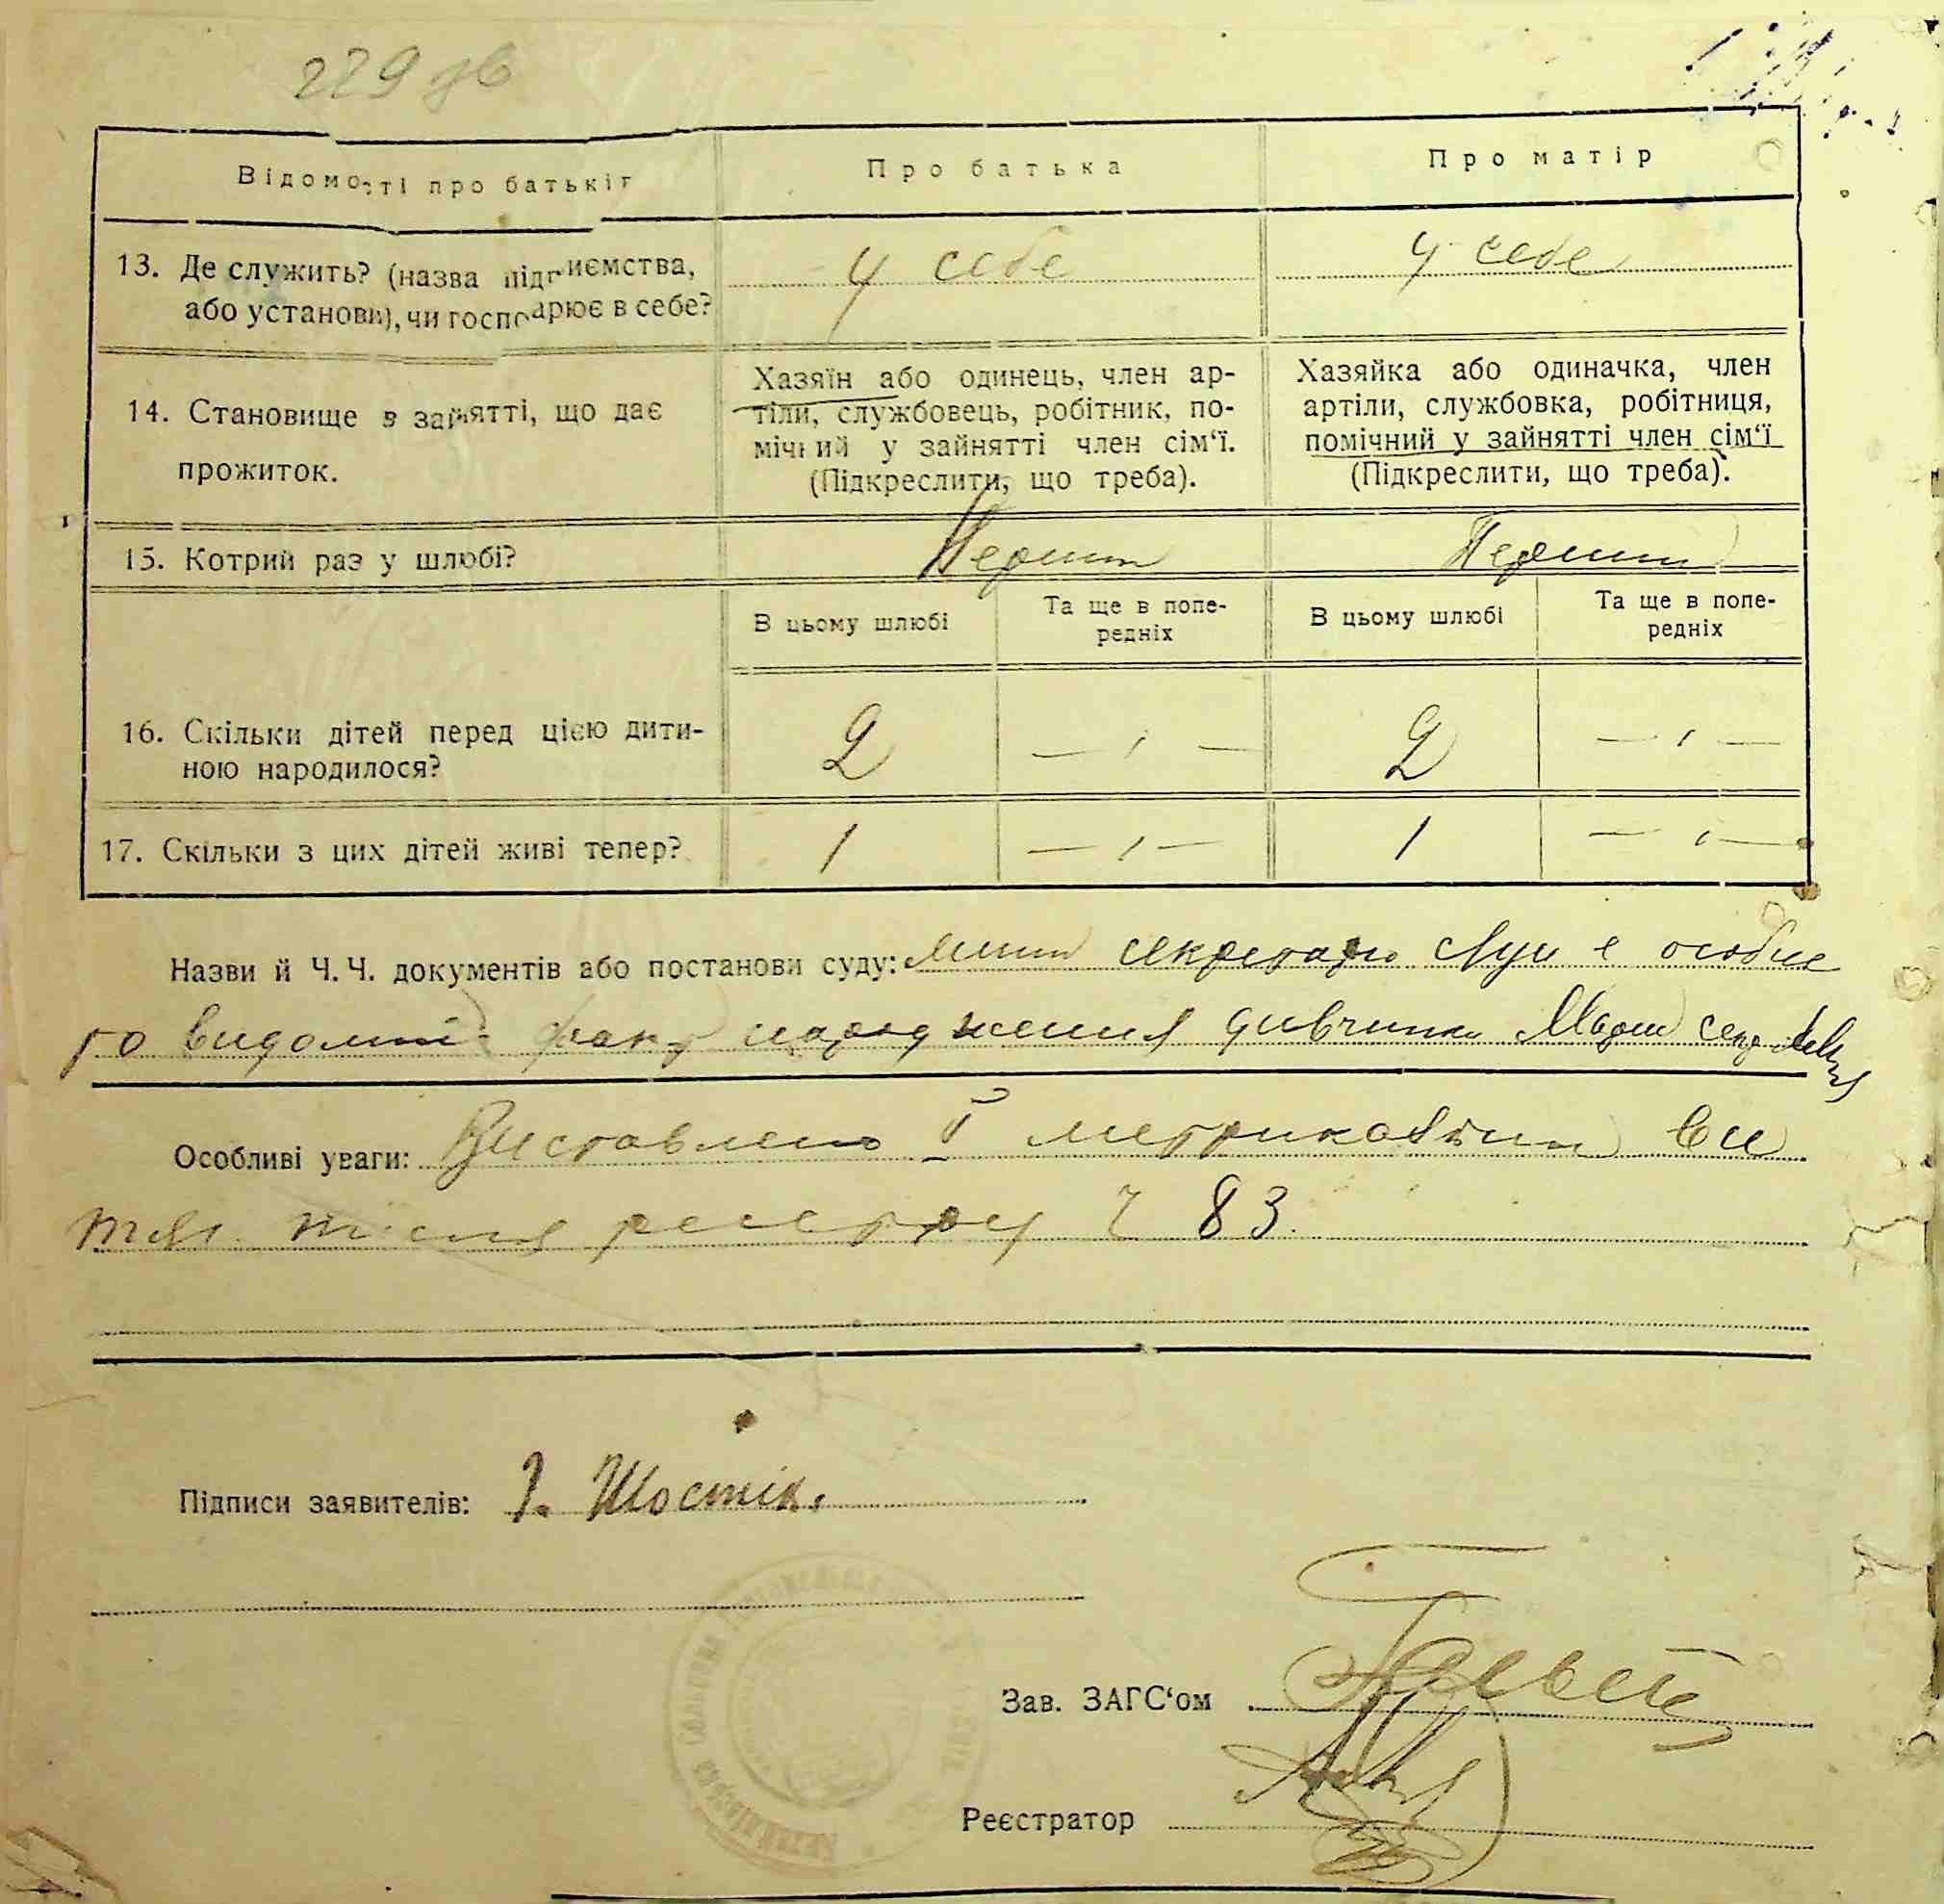 229 зв
Відомості про батьків
Про батька
Про матір
13. Де служить? (назва підприємства,
або установи), чи господарює в себе?
у себе
у себе
14. Становище в зайнятті, що дає
прожиток.
Хазяїн або одинець, член ар-
тіли, службовець, робітник, по-
мічний у зайнятті член сім‘ї.
(Підкреслити, що треба).
Хазяйка або одиначка, член
артіли, службовка, робітниця,
помічний у зайнятті член сім‘ї
(Підкреслити, що треба).
15. Котрий раз у шлюбі?
Перший
Перший
В цьому шлюбі
Та ще в попе-
редніх
В цьому шлюбі
Та ще в попе-
редніх
16. Скільки дітей перед цією дити-
ною народилося?
2
— ı —
2
— ı —
17. Скільки з цих дітей живі тепер?
1
— ı —
1
— ı —
Назви й Ч.Ч. документів або постанови суду: мині секретарю є особис
то видомий факт народження дивчинки Марии секр
Особливі уваги: Виставлено метрикові ви
тяг після реестру Ч 83.
Підписи заявителів: І. Шостік.
Зав. ЗАГС‘ом
Реєстратор